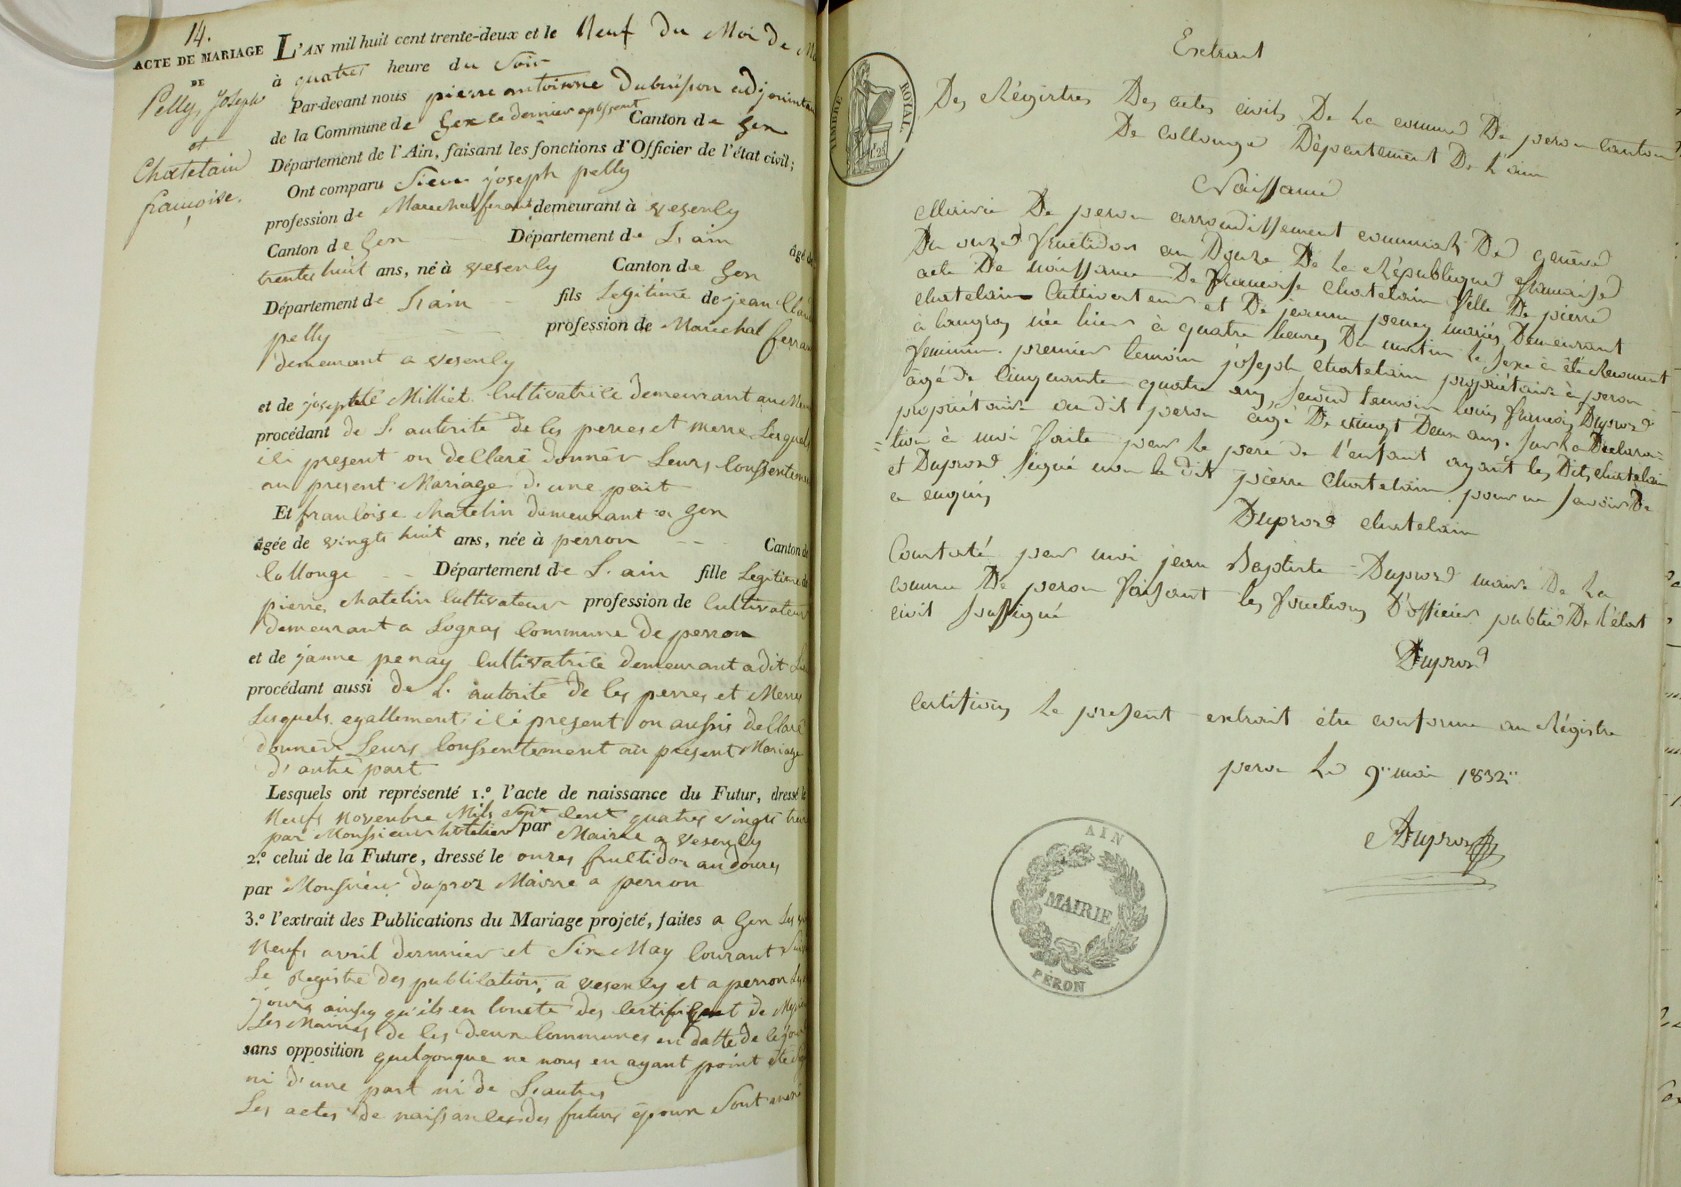 14.
ACTE DE MARIAGE
DE
Pelly, Joseph
et
Chatelain
françoise.
L'AN mil huit cent trente-deux et le Neuf du Moi de
à quatres heure du Soir
Par-devant nous pierre antoinne Dubuisson adjoint
de la Commune de Gex le dernier Canton de Gex
Département de l'Ain, faisant les fonctions d'Officier de l'état civil;
Ont comparu Sieur joseph pelly
profession de Marechal ferant demeurant à vesenly
Canton de Gex Département de L'ain âgé de
trente huit ans, né à vesenly Canton de Gex
Département de L'ain fils Legitime de jean
pelly profession de Marechal ferran
demeurant a vesenly
et de josephte Milliet Cultivatrice demeurant au
procédant de L'autorité de ces perres et merre Lesquels
ici present on declaré donnér Leurs Consentement
au present Mariage d'une part
Et francoise chatelin demeurant a Gex
âgée de vingts huit ans, née à perron Canton de
Collonge Département de L'ain fille Legitime de
pierre chatelin Cultivateur profession de Cultivateur
demeurant a Logras Commune de perron
et de janne penay Cultivatrice demeurant a dit
procédant aussi de L'autorité de ces perres et Merres
Lesquels egallement ici present on aussis declaré
donnér Leurs Consentement au present Mariage
d'autre part
Lesquels ont représenté 1.º l'acte de naissance du Futur, dressé le
Neufs Novembre Mils Sept Cent quatres vingts
par Monsieur par Mairre a vesenly
2.º celui de la Future, dressé le onzes fructidor an douzes
par Monsieur duproz Mairre a perron
3.º l'extrait des Publications du Mariage projeté, faites a Gex Les
Neufs avril dernnier et Six May Courant
Le Registre des publication, a vesenly et a perron
jours ainsy qu'ils en Conste des Certifiquat de
Les Mairres de ces deux Communes en datte de ce jour
sans opposition quelqonque ne nous en ayant point été
ni d'une part ni de L'autres
Les actes de naissances des futurs époux Sont
TIMBRE ROYAL
Extrait
Des Régistres Des actes civils De la commune De peron canton
De Collonge Département De L'ain
Naissance
Mairie De peron arrondissement communal De genêve
Du onze fructidor an Douze De la République française
acte De naissance De françoise Chatelain fille De pierre
Chatelain Cultivateur et De jeanne peney mariés Demeurant
à Lougras, née hier à quatre heures Du matin le sexe a été reconnu
feminin. premier temoin joseph Chatelain propriétaire à peron
âgé de Cinquante quatre ans, second temoin louis françois Duproz
propriétaire au dit peron âgé De vingt Deux ans. sur la Déclara=
=tion à moi faite par le pere de l'enfant ayant les Dits Chatelain
et Duproz signé non le dit pierre Chatelain pour ne savoir De
ce enquis
Duproz Chatelain
Constaté par moi jean Baptiste Duproz maire De La
comune De peron faisant les fonctions D'officier public De l'état
civil soussigné
Duproz
Certifions Le present extrait être conforme au Régistre
peron Le 9 mai 1832
Duproz
AIN
MAIRIE
PÉRON